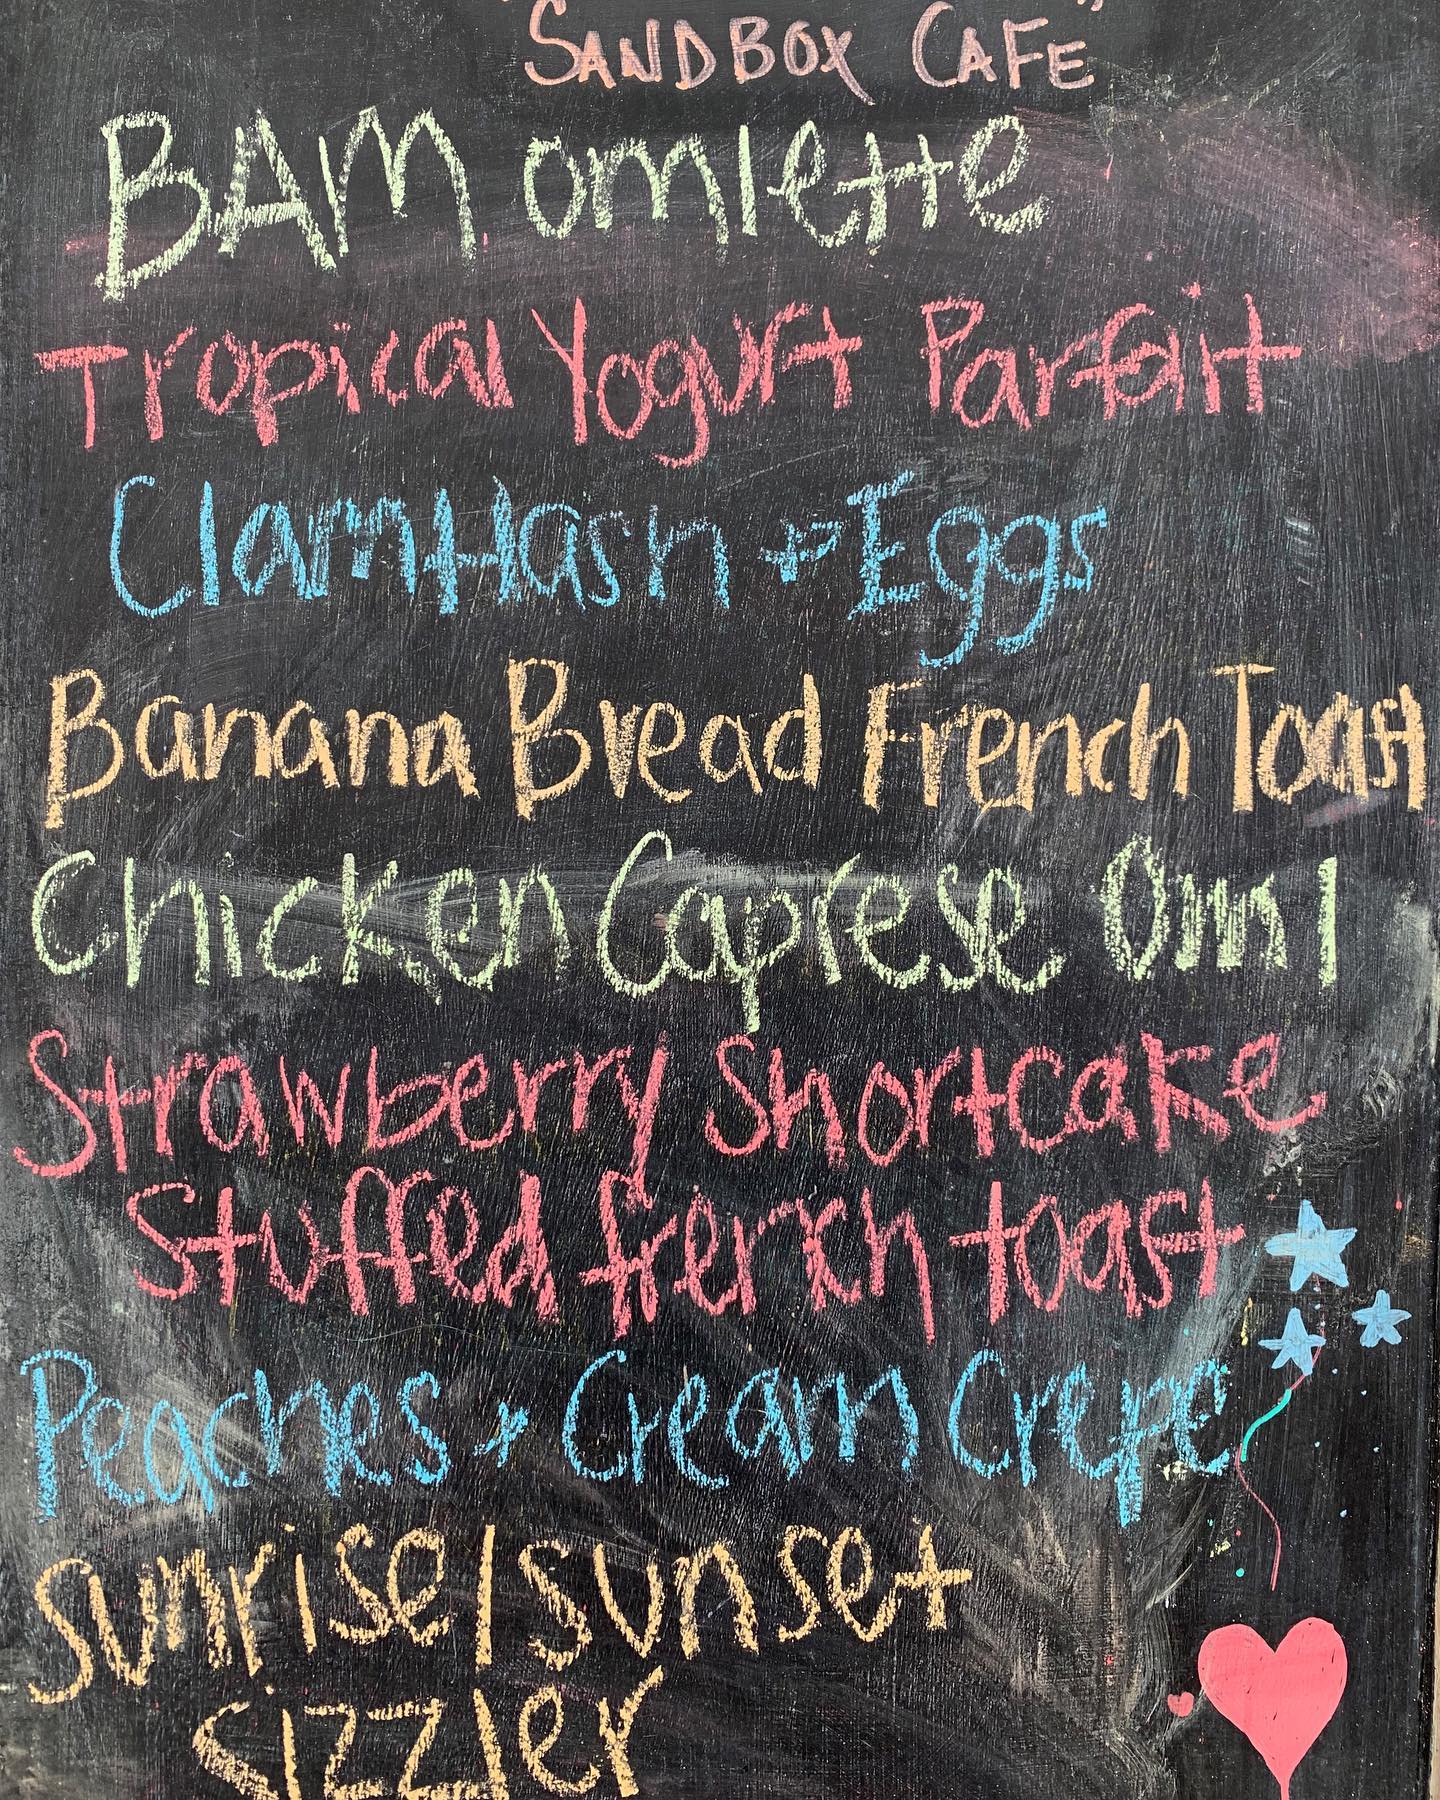 SANDBOX CAFE
BAM omlette
Tropical Yogurt Parfait
Clam Hash + Eggs
Banana Bread French Toast
Chicken Caprese Oml
Strawberry Shortcake
Stuffed french toast
Peaches + Cream Crepe
Sunrise/sunset
Sizzler